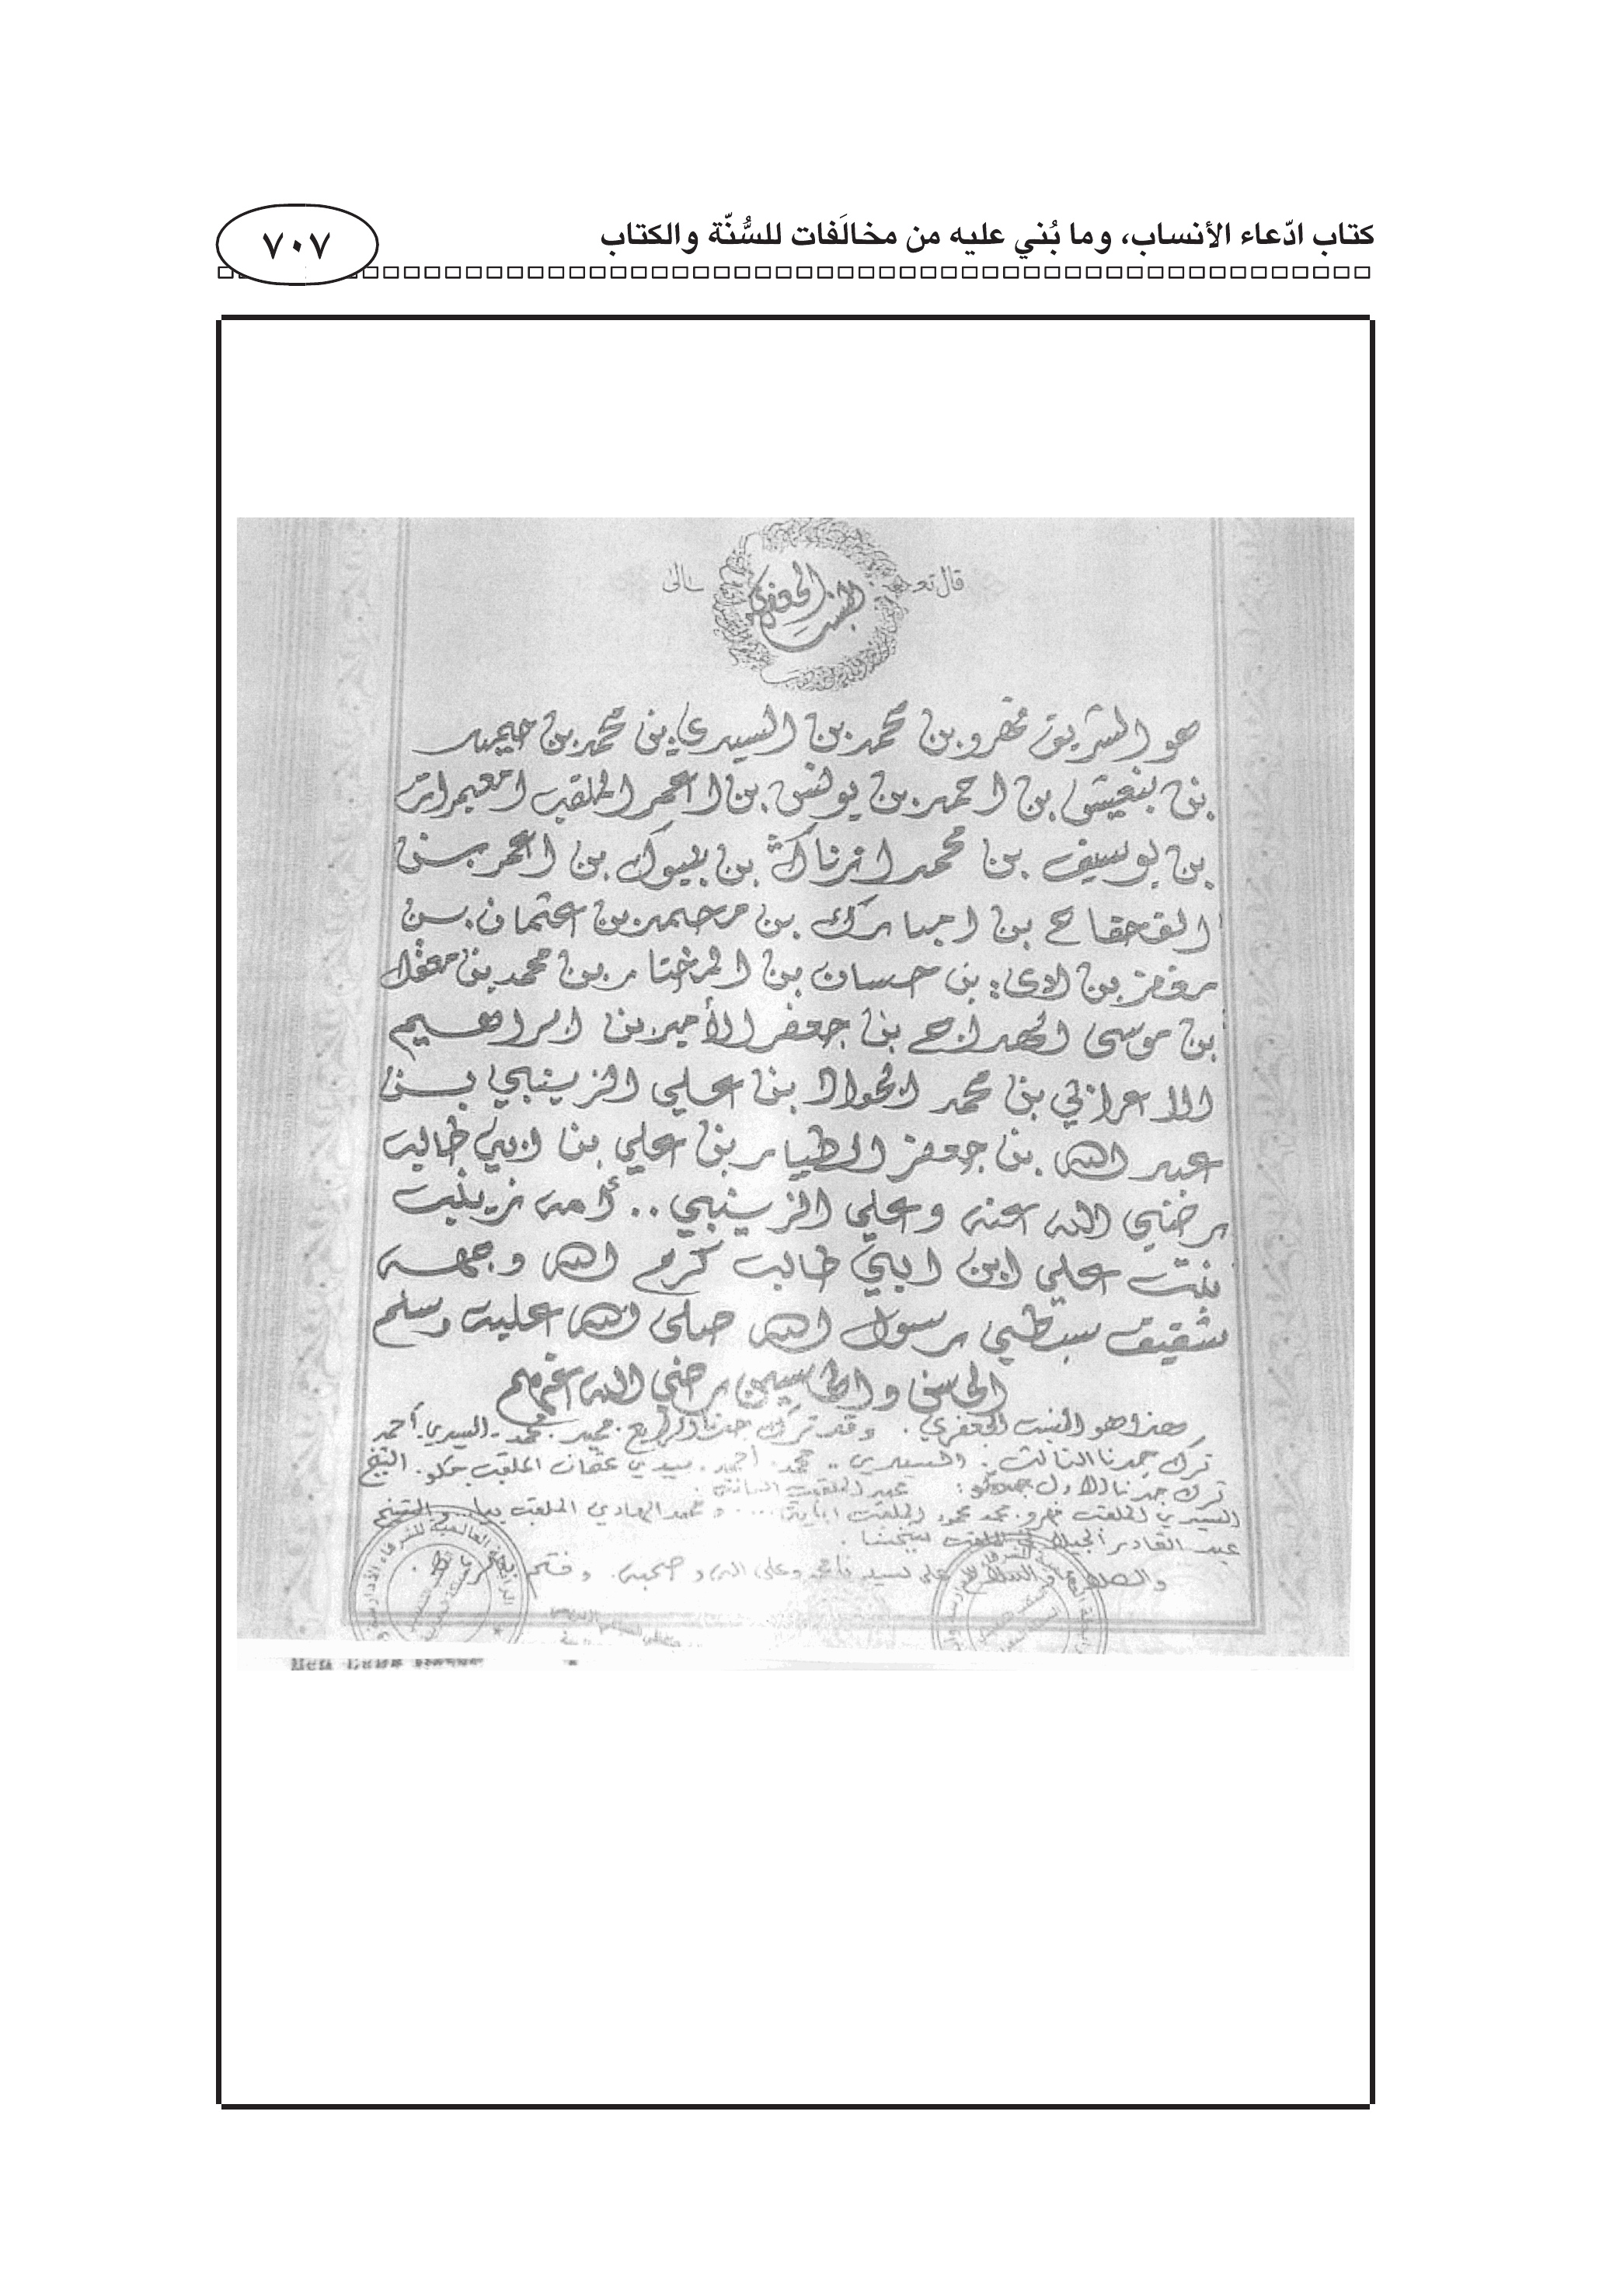 كتاب ادّعاء الأنساب، وما بُني عليه من مخالَفات للسُّنّة والكتاب
٧٠٧
قال تعـ ـالى
النسب الجعفري
هو الشريف فضرو بن محمد بن السيدي بن محمد بن حيمد
بن بنعيش بن احمد بن يونس بن اعمر الملقب
بن يوسيف بن محمد بن بيبوك بن اعمر بـن
بن امبارك بن مرحيمد بن اعثمان بـن
بن حسان بن المختار بن محمد بن معقل
بن موسى الهداج بن جعفر الأمير بن ابراهـيم
الاعرابي بن محمد الجواد بن علي الزينبي بـن
عبد الله بن جعفر الطيار بن علي بن ابي طالب
رضي الله عنه وعلي الزينبي .. أمه زينب
بنت علي ابن ابي طالب كرم الله وجهـه
شقيق سبطي رسول الله صلى الله عليه وسلم
الحاسن والحاسين رضي الله اعنهم
هذا هو النسب الجعفري. وقد ترك جدنا الرابع. حميد. محمد. السيدي. أحمد
ترك جدنا الثالث. السيدي .. محمد. احمد. سيدي عثمان الملقب حكو. الشيخ
ترك جدنا الاول عبد الملقب
السيدي الملقب فضرو. محمد محمود الملقب .... و محمد الهادي الملقب
عبد القادر الملقب
والصلاة والسلام على سيدنا محمد وعلى اله وصحبه.
العالمية للشرفاء الأدارسة